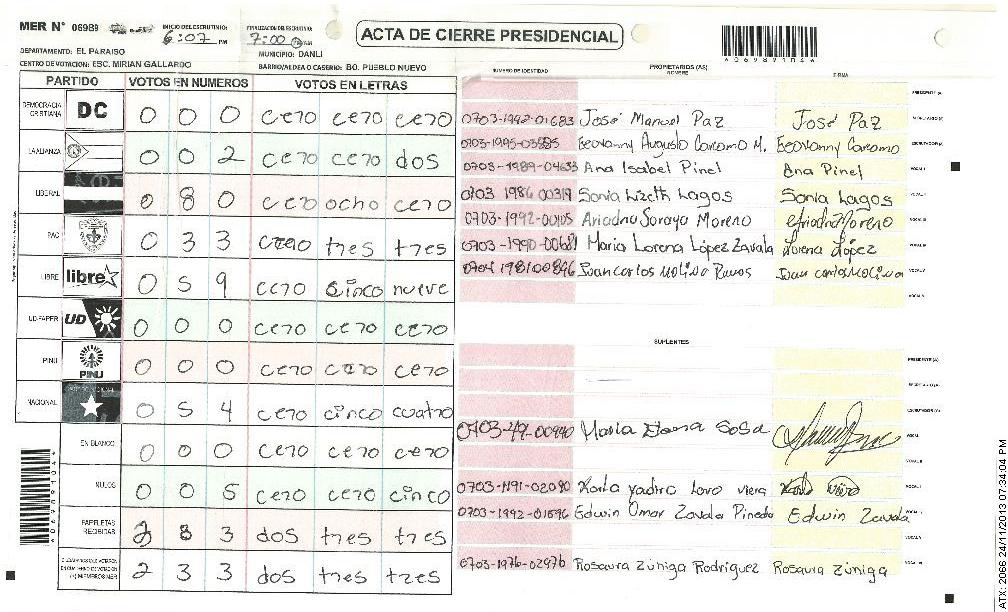 MER N° 06989
INICIO DEL ESCRUTINIO: 6:07 PM
FINALIZACION DEL ESCRUTINIO: 7:00
ACTA DE CIERRE PRESIDENCIAL
DEPARTAMENTO: EL PARAISO
MUNICIPIO: DANLI
CENTRO DE VOTACION: ESC. MIRIAN GALLARDO
BARRIO/ALDEA O CASERIO: BO. PUEBLO NUEVO
PARTIDO VOTOS EN NUMEROS VOTOS EN LETRAS
DEMOCRACIA CRISTIANA DC 0 0 0 cero cero cero
LA ALIANZA 0 0 2 cero cero dos
LIBERAL 0 8 0 cero ocho cero
PAC 0 3 3 cero tres tres
LIBRE libre 0 5 9 cero cinco nueve
UD-FAPER UD 0 0 0 cero cero cero
PINU PINU 0 0 0 cero cero cero
NACIONAL 0 5 4 cero cinco cuatro
EN BLANCO 0 0 0 cero cero cero
NULOS 0 0 5 cero cero cinco
PAPELETAS RECIBIDAS 2 3 3 dos tres tres
MIEMBROS MER 2 3 3 dos tres tres
NUMERO DE IDENTIDAD PROPIETARIOS (AS) NOMBRE FIRMA
PRESIDENTE (A)
0703-1992-01683 José Manuel Paz José Paz
0703-1995-03585 Geovanny Augusto Carcamo M. Geovanny Carcamo
0703-1989-04633 Ana Isabel Pinel Ana Pinel
0703 1986 00319 Sonia Lizeth Lagos Sonia Lagos
0703-1992-00105 Ariadna Soraya Moreno Ariadna Moreno
0703-1990-00681 Maria Lorena López Zavala Lorena López
0704 1981 00846 Juan carlos Molina Ramos Juan carlos Molina
SUPLENTES
PRESIDENTE (A)
SECRETARIO (A)
ESCRUTADOR (A)
0703-49-00940 Maria Elena Sosa
0703-1191-02080 Karla Yadira Lovo Viera
0703-1992-01696 Edwin Omar Zavala Pineda Edwin Zavala
0703-1976-02976 Rosaura Zúniga Rodríguez Rosaura Zúniga
4069891044
ATX: 2066 24/11/2013 07:34:04 PM